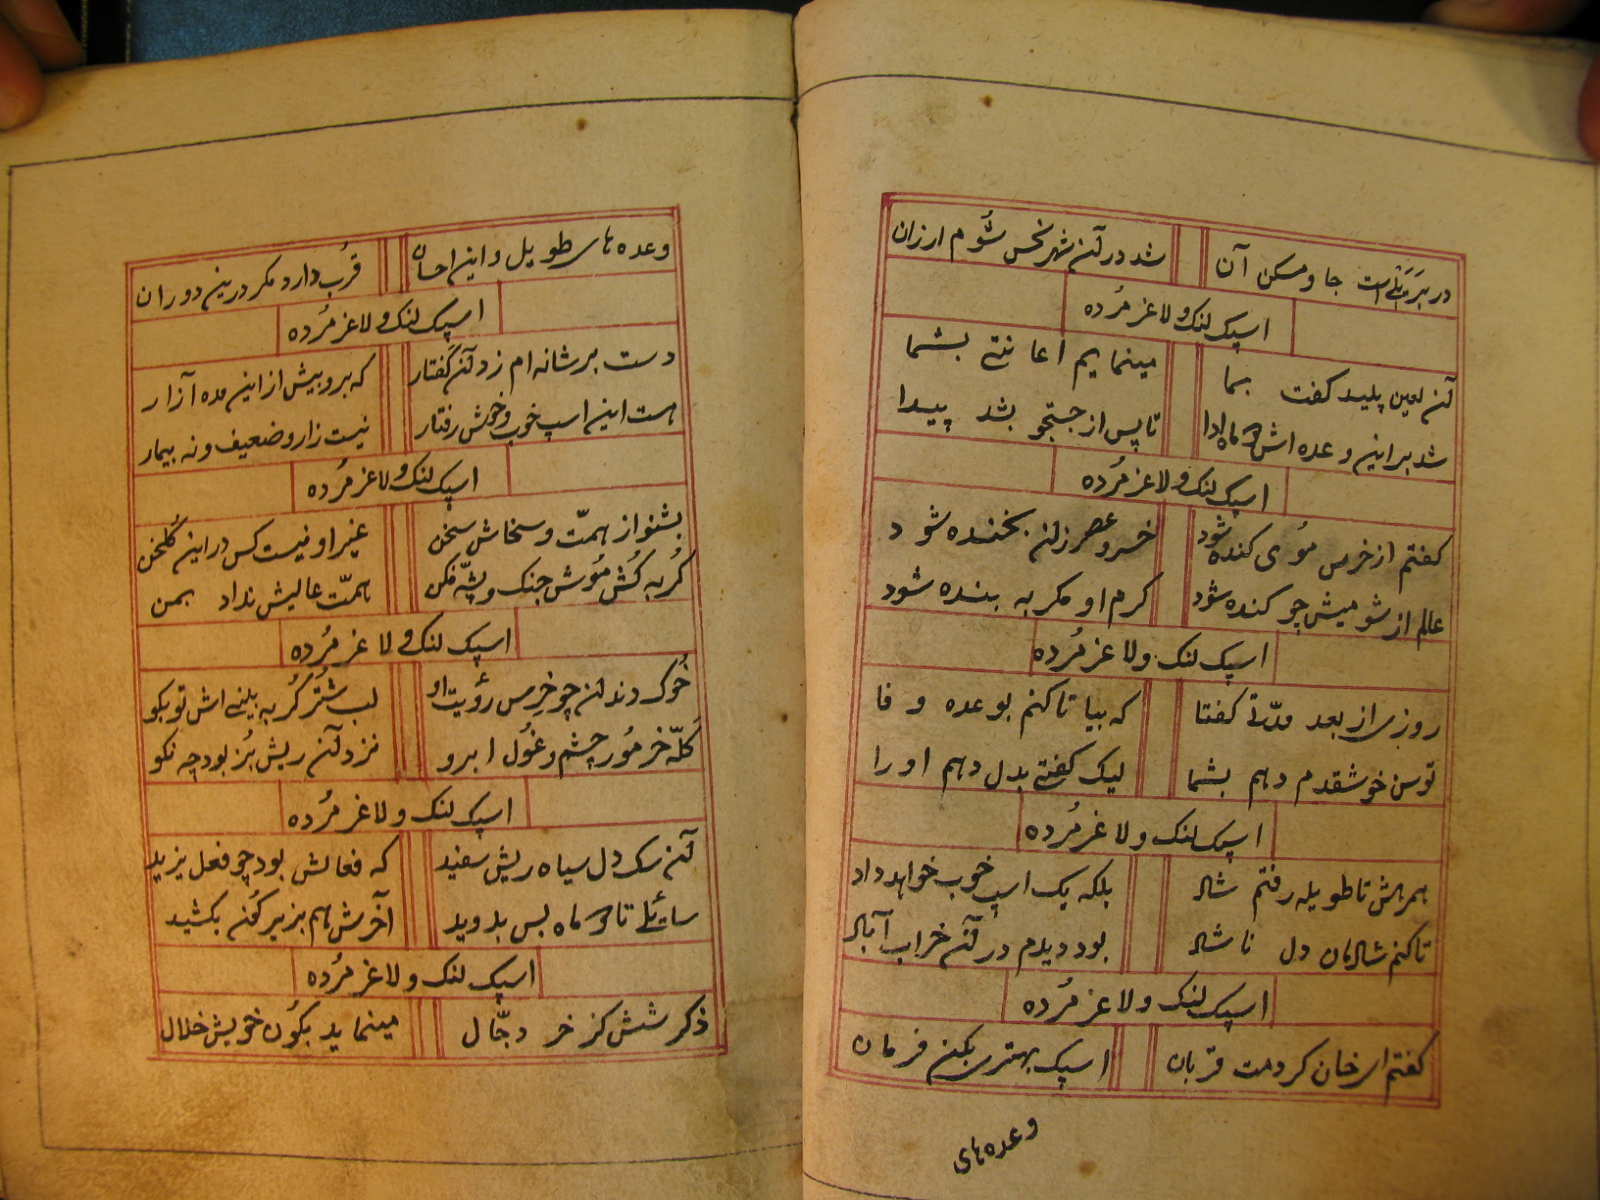 در هر جا و مسکن آن شد در آن شهر نحس شُوم ارزان
اسپک لنک و لاغر مُرده
آن لعین پلید کفت بما مینمایم اعانتے بشما
شد براین وعده اش ماه ادا تا پس از جستجو بشد پیدا
اسپک لنک و لاغر مُرده
کفتم از خرس مُوی کنده شود خسرو عصر زان بخنده شود
عالم از شومیش چو کنده شود کرم او مکر به بنده شود
اسپک لنک و لاغر مُرده
روزی از بعد مدّتے کفتا که بیا تا کنم بوعده وفا
توسن خوشقدم دهم بشما لیک کفتے بدل دهم او را
اسپک لنک و لاغر مُرده
همرهش تا طویله رفتم شاد بلکه یک اسپ خوب خواهد داد
تا کنم شادمان دل ناشاد بود دیدم در آن خراب آباد
اسپک لنک و لاغر مُرده
کفتم ای خان کردمت قربان اسپک بهتری بکن فرمان
وعده های
وعده های طویل و این احسان قُرب دارد مکر درین دوران
اسپک لنک و لاغر مُرده
دست بر شانه ام زد آن کَفتار که برو بیش از این مده آزار
هست این اسپ خوب و خوش رفتار نیست زار و ضعیف و نه بیمار
اسپک لنک و لاغر مُرده
بشنو از همّت و سخاش سخن غیر او نیست کس در این کُلخن
کُربه کُش مُوش جنک و پشّه فکن همّت عالیش نداد بمن
اسپک لنک و لاغر مُرده
خُوک دندان چو خرس رؤیت او لب شُتُر کُربه بینے اش تو بکو
کَلّه خر مُور چشم و غُول ابرو نزد آن ریش بُز بود چه نکو
اسپک لنک و لاغر مُرده
آن سک دل سیاه ریش سفید که فعالش بود چو فعل یزید
سائلے تا ماه بس بدوید آخرش هم بزیر کُن بکشید
اسپک لنک و لاغر مُرده
ذکر شش کز خر دجّال مینماید بکُون خویش خلال